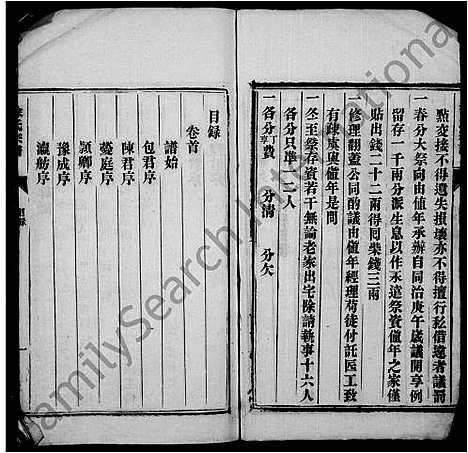 點交接不得遺失損壞亦不得擅行私借違者議罰
一春分大祭向由值年承辦自同治庚午歲議開享例
留存一千兩分派生息以作永遠祭資值年之家僅
貼出錢二十二兩得囘柴錢三兩
一修理翻蓋公同酌議由值年經理荷徒付託匠工致
有疎虞輿值年是問
一冬至祭存資若干無論老家出宅除請執事十六人
各分只準一二人
一各分丁費 分清 分欠
享
目录
卷首
譜始
包君序
陳君序
蕘庭序
穎卿序
豫成序
瀛舫序
氏宗譜
目錄
一
FamilySearch International